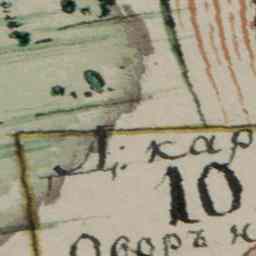 Д. кар
10
Озоръ н